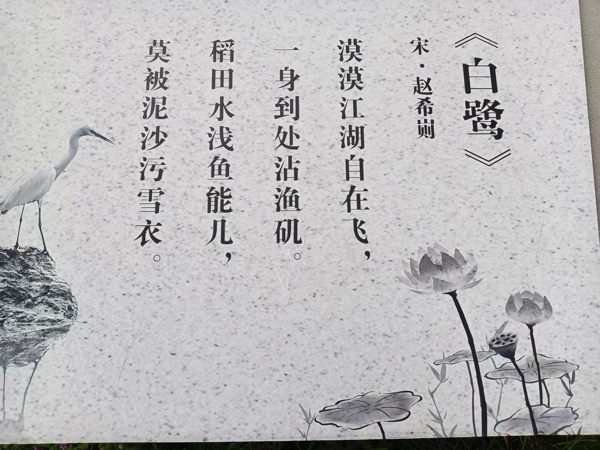 《白鹭》
宋·赵希崱
漠漠江湖自在飞，
一身到处沾渔矶。
稻田水浅鱼能几，
莫被泥沙污雪衣。